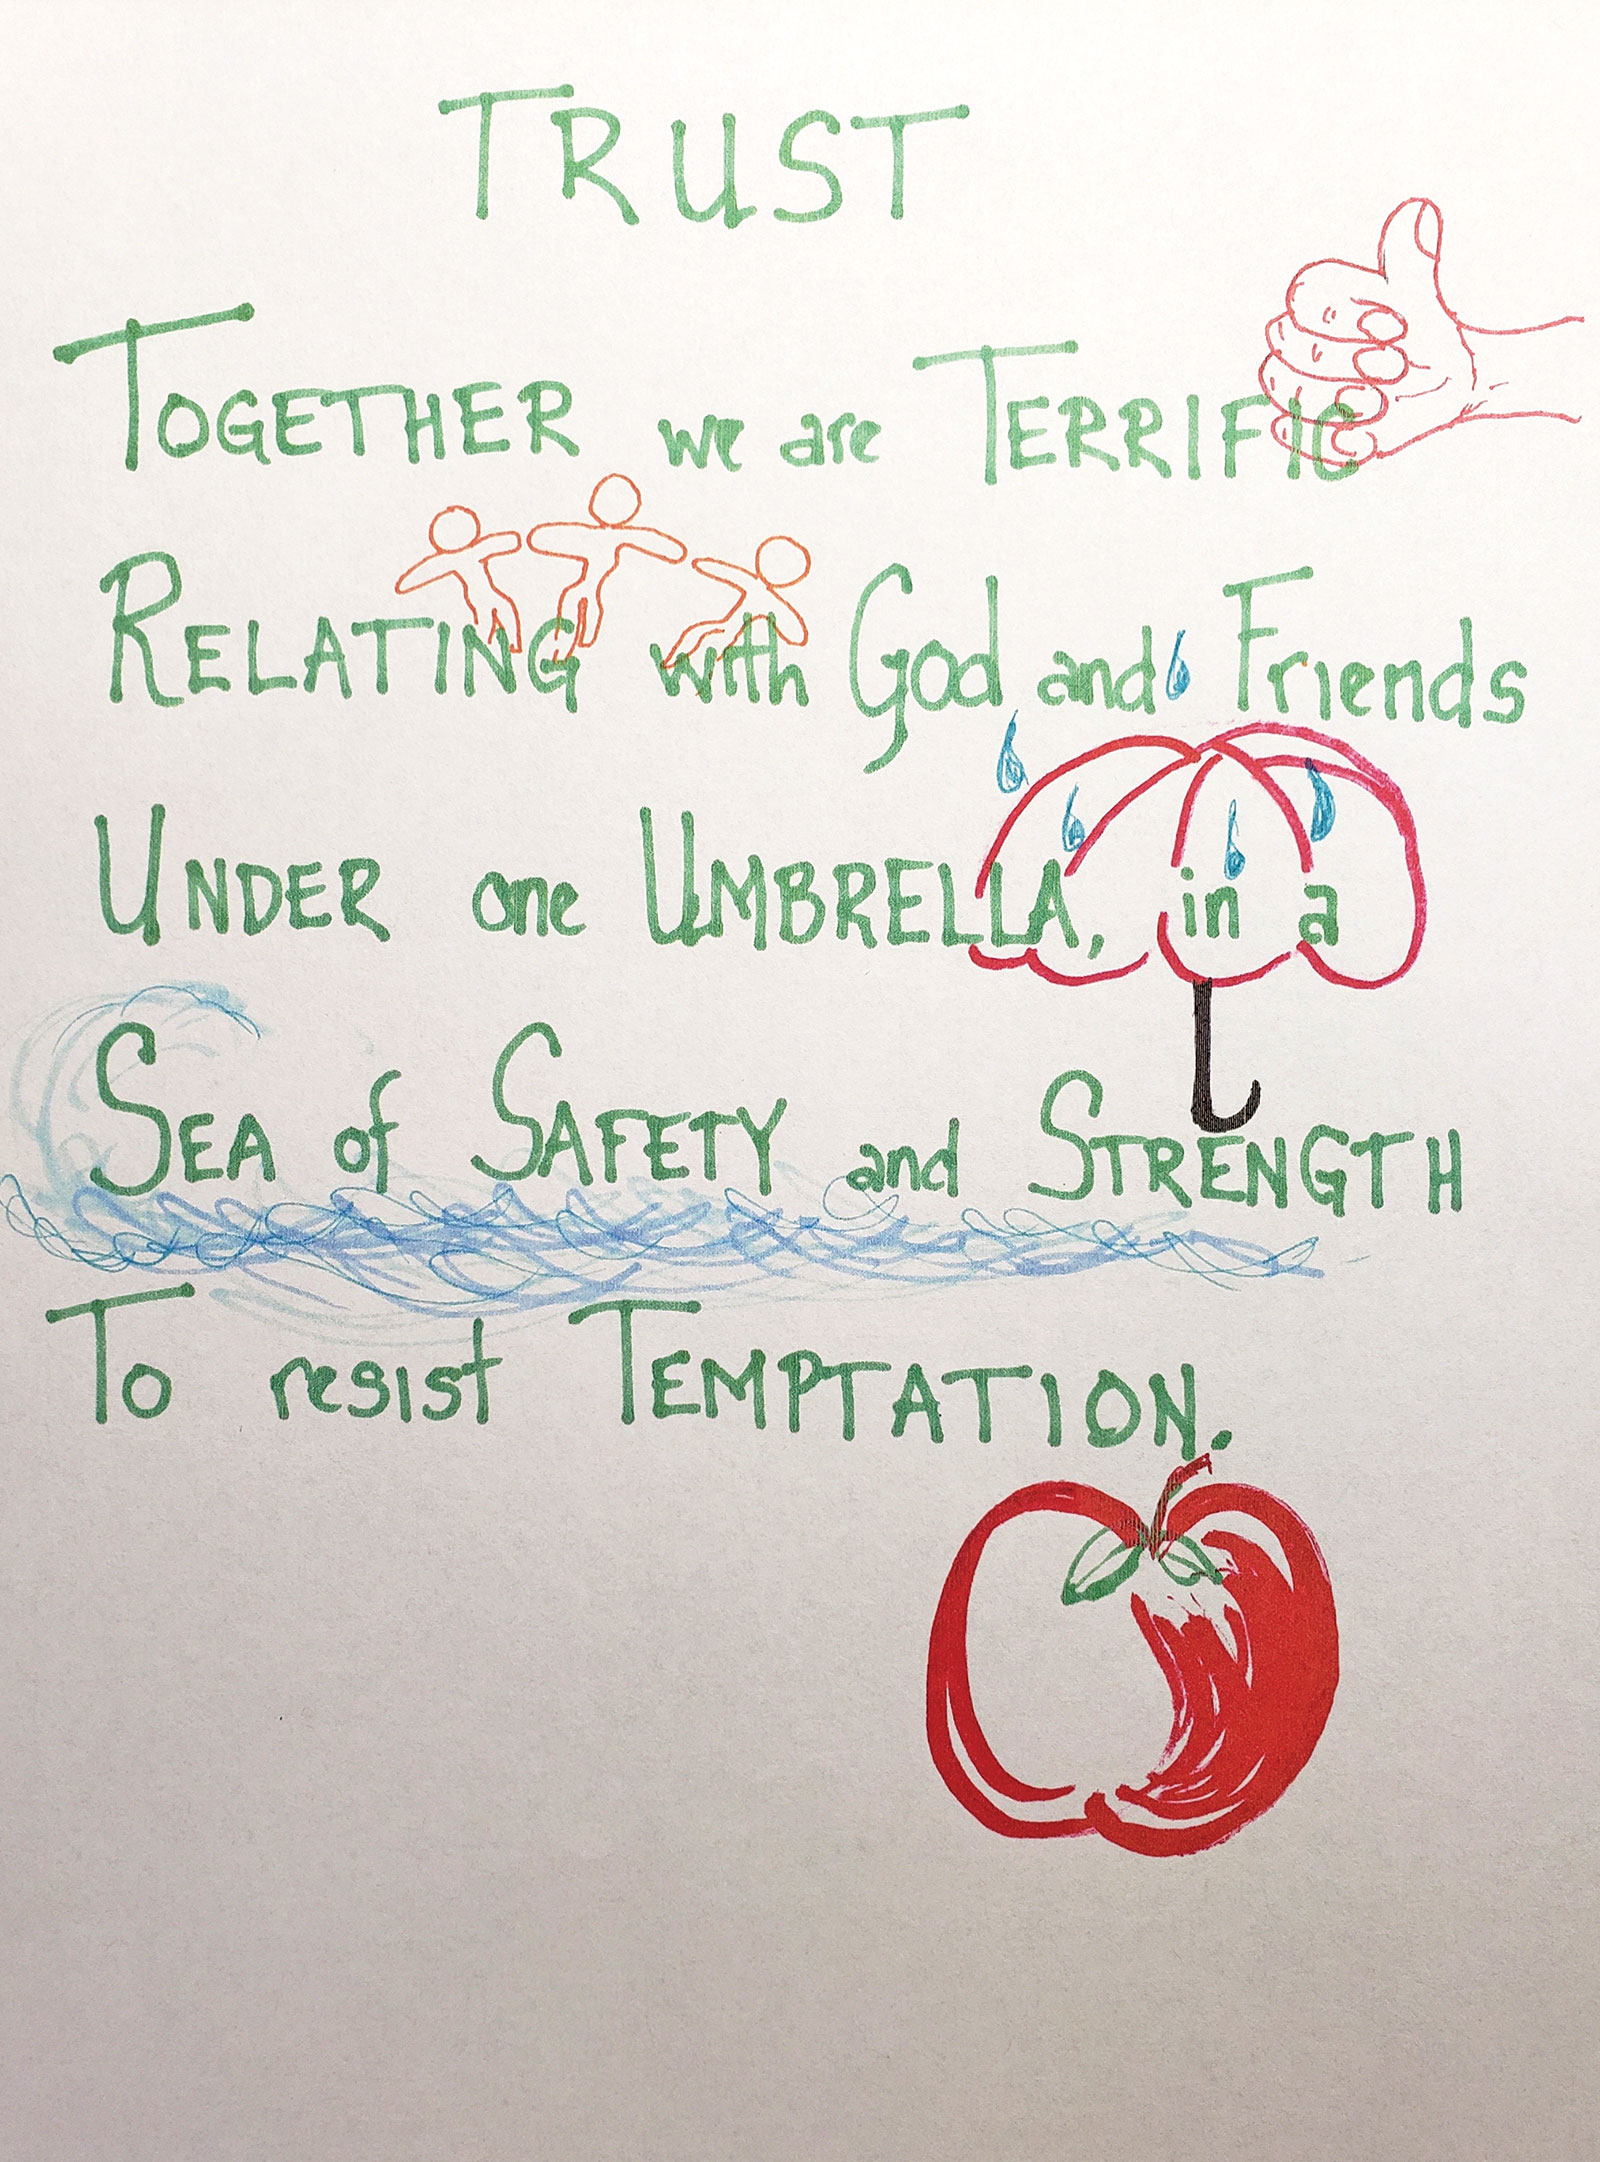 TRUST
TOGETHER we are TERRIFIC
RELATING with God and Friends
UNDER one UMBRELLA, in a
SEA of SAFETY and STRENGTH
To resist TEMPTATION.